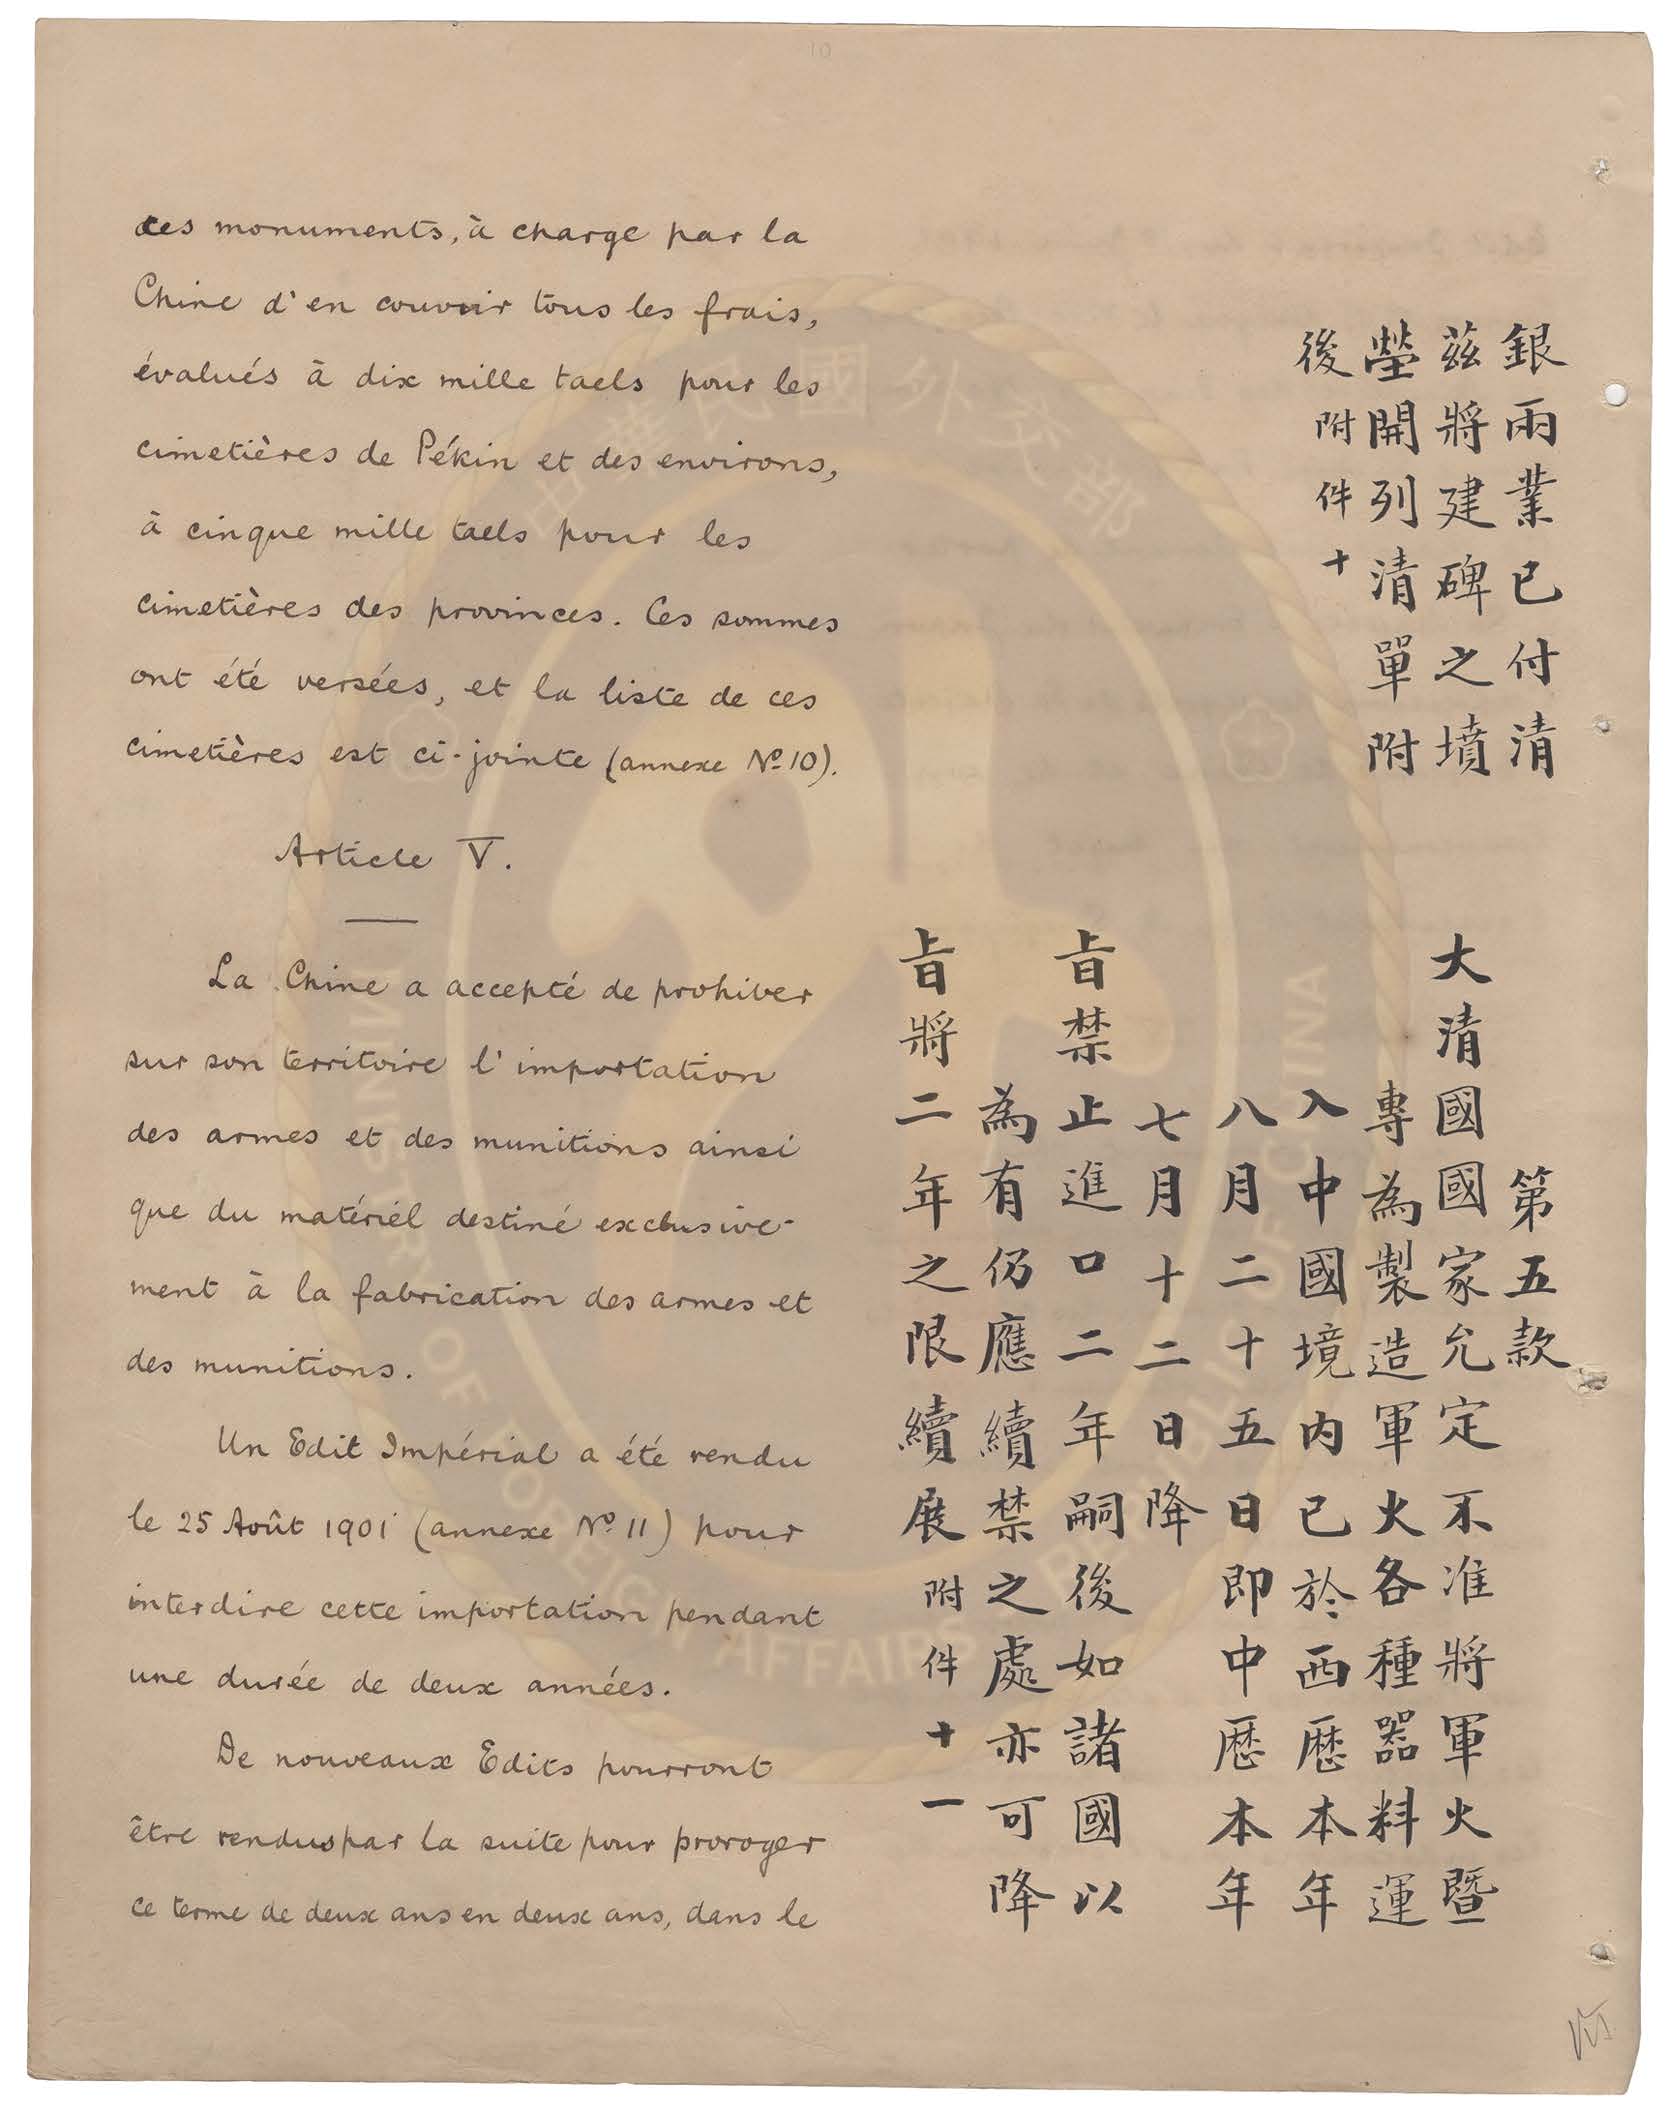 10
ces monuments, à charge par la
Chine d'en couvrir tous les frais,
évalués à dix mille taels pour les
cimetières de Pékin et des environs,
à cinque mille taels pour les
cimetières des provinces. Ces sommes
ont été versées, et la liste de ces
cimetières est ci-jointe (annexe No 10).
Article V.
La Chine a accepté de prohiber
sur son territoire l'importation
des armes et des munitions ainsi
que du matériel destiné exclusive-
ment à la fabrication des armes et
des munitions.
Un Edit Impérial a été rendu
le 25 Août 1901 (annexe No 11) pour
interdire cette importation pendant
une durée de deux années.
De nouveaux Edits pourront
être rendus par la suite pour proroger
ce terme de deux ans en deux ans, dans le
銀兩業已付清
茲將建碑之墳
塋開列清單附
後附件十
第五款
大清國國家允定不准將軍火暨
專為製造軍火各種器料運
入中國境內已於西歷本年
八月二十五日即中歷本年
七月十二日降
旨禁止進口二年嗣後如諸國以
為有仍應續禁之處亦可降
旨將二年之限續展附件十一
中華民國外交部
MINISTRY OF FOREIGN AFFAIRS REPUBLIC OF CHINA